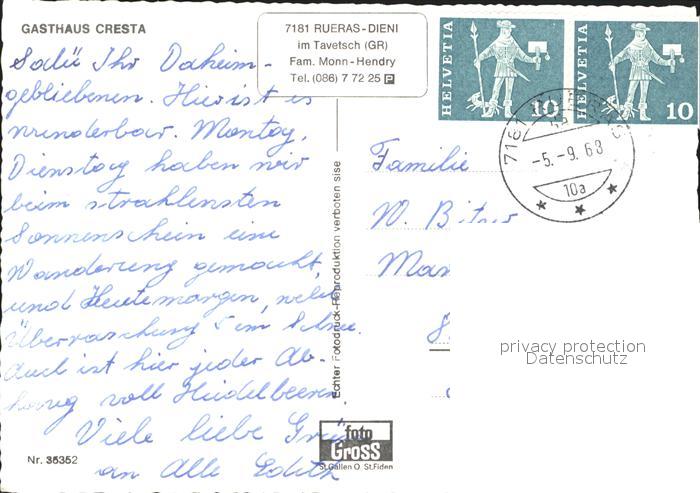 GASTHAUS CRESTA
7181 RUERAS-DIENI
im Tavetsch (GR)
Fam. Monn-Hendry
Tel. (086) 7 72 25 P
Salü Ihr Daheim-
gebliebenen. Hier ist es
wunderbar. Montag,
Dienstag haben wir
beim strahlensten
Sonnenschein eine
Wanderung gemacht,
und Heutemorgen, welch
Überraschung 5 cm Schnee.
Auch ist hier jeder Ab-
hang voll Heidelbeeren.
Viele liebe Grüsse
an Alle Edith
Nr. 35352
Echter Fotodruck-Reproduktion verboten sise
foto
GROSS
St.Gallen O. St.Fiden
HELVETIA 10
HELVETIA 10
7181
-5.-9.68
10a
Familie
W.
privacy protection
Datenschutz